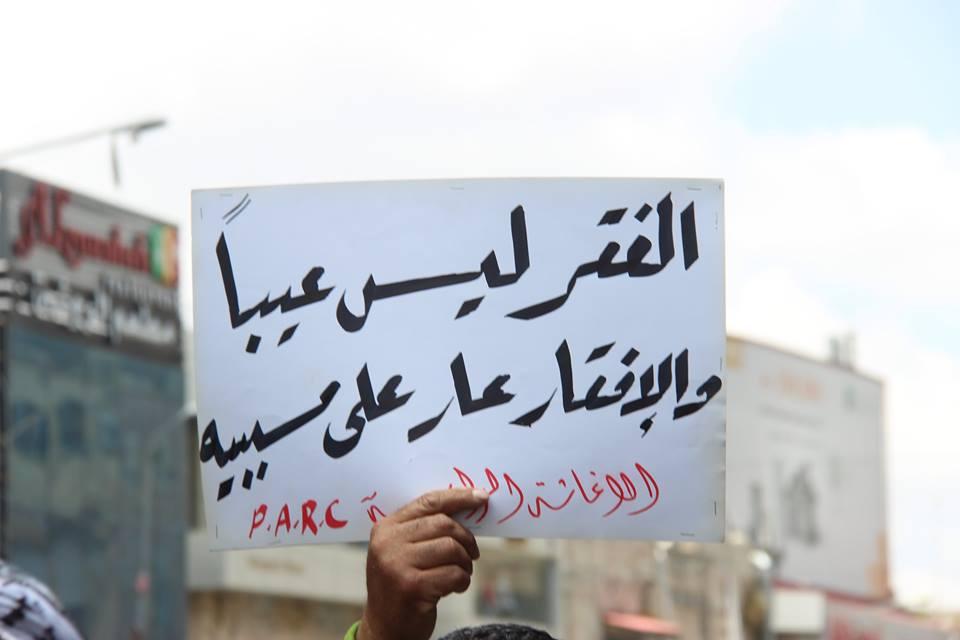 الفقر ليس عيباً
والإفقار عار على مسببيه
الاغاثة P.A.R.C